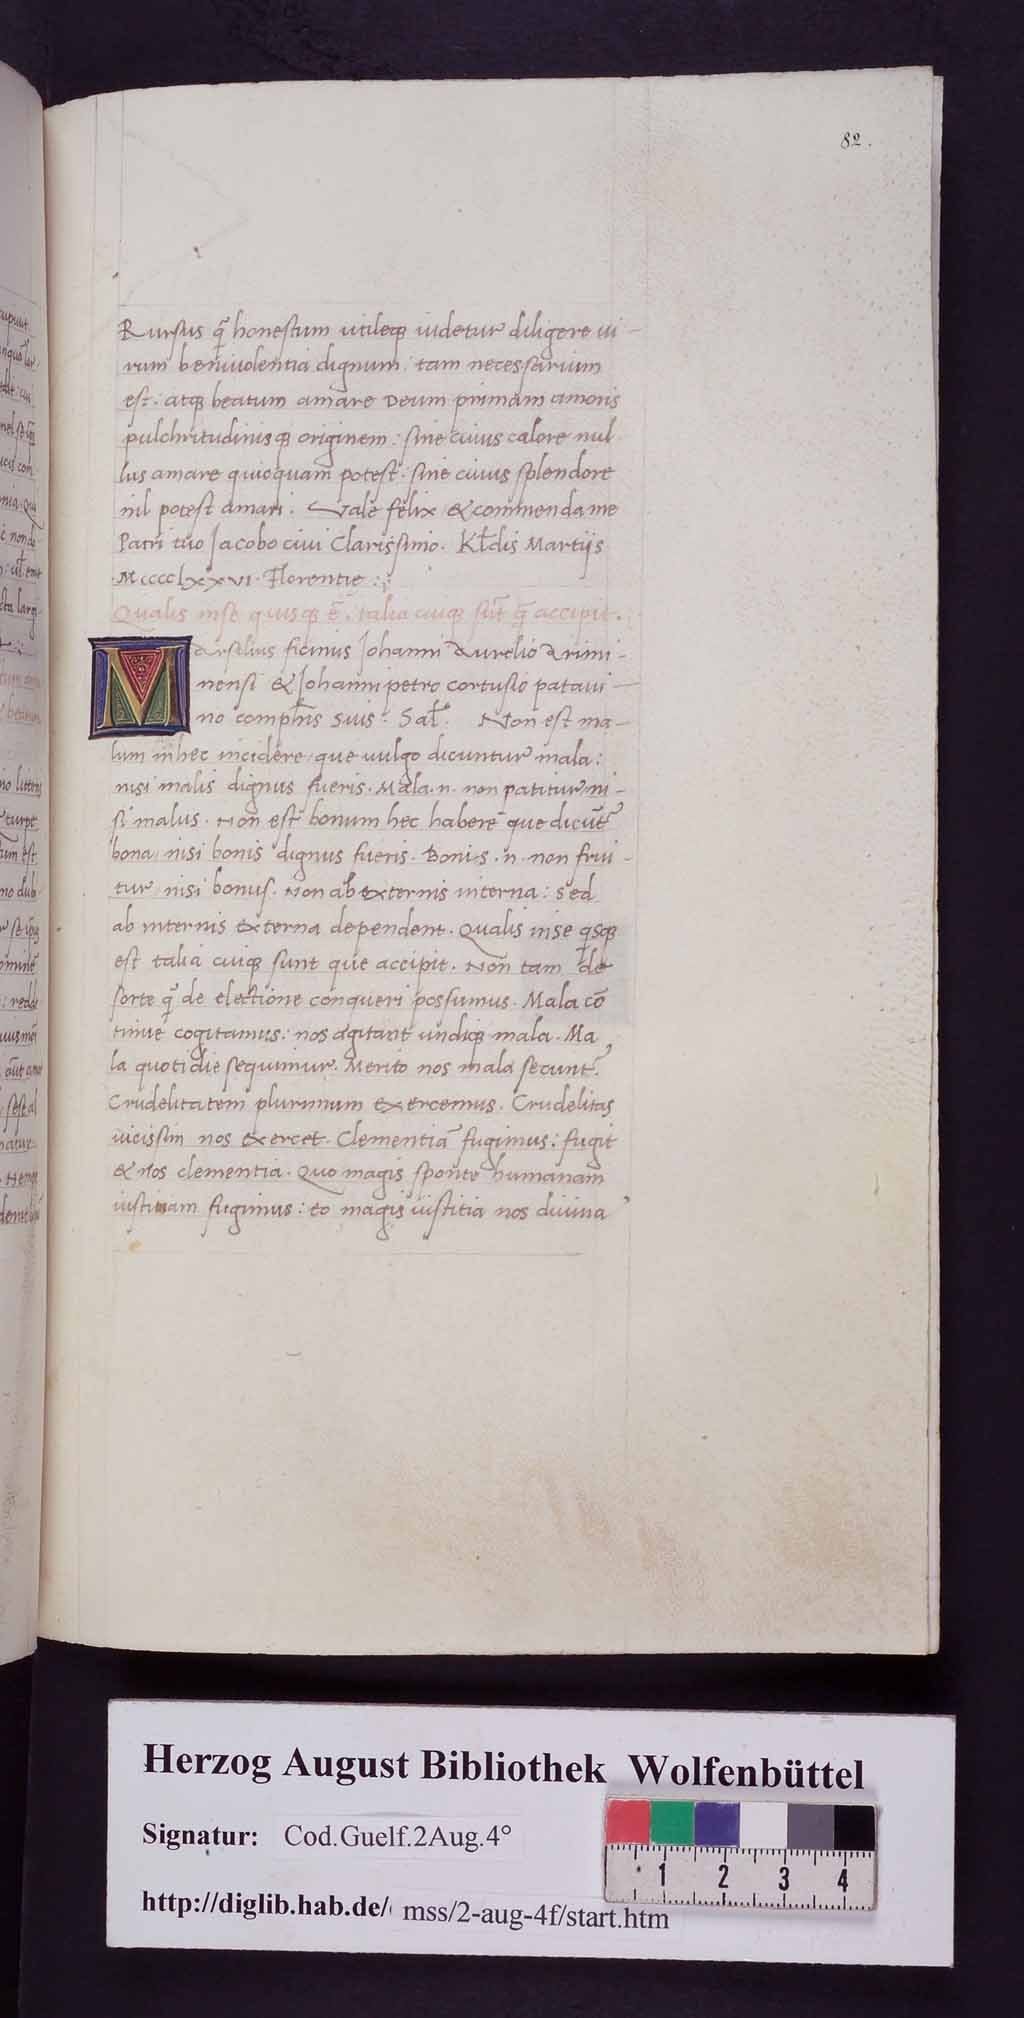 82.
Rursus q̃ honestum utileq; uidetur diligere ui-
rum beniuolentia dignum: tam necessarium
est: atq; beatum amare Deum primam amoris
pulchritudinisq; originem: sine cuius calore nul
lus amare quicquam potest: sine cuius splendore
nil potest amari. Vale felix & commenda me
Patri tuo Jacobo ciui Clarissimo. Kl̃dis Martijs
Mcccclxxvi. Florentie:
Qualis in se quisq; ẽ, talia cuiq; sũt q̃ accipit.
Marsilius ficinus Johanni Aurelio Arimi-
nensi & Johanni petro cortusio pataui-
no compħis suis: Sał. Non est ma-
lum in hec incidere, que uulgo dicuntur mala:
nisi malis dignus fueris. Mala .n. non patitur ni-
si malus. Non est bonum hec habere que dicũt̃
bona, nisi bonis dignus fueris. Bonis .n. non frui-
tur, nisi bonus. Non ab externis interna: sed
ab internis externa dependent. Qualis in se q̃sq;
est talia cuiq; sunt que accipit. Non tam de
sorte q̃ de electione conqueri possumus. Mala cõ
tinue cogitamus: nos agitant undiq; mala. Ma
la quotidie sequimur. Merito nos mala secunt̃.
Crudelitatem plurimum exercemus. Crudelitas
uicissim nos exercet. Clementiã fugimus: fugit
& nos clementia. Quo magis sponte humanam
iustitiam fugimus: eo magis iustitia nos diuina
Herzog August Bibliothek Wolfenbüttel
Signatur: Cod.Guelf.2Aug.4°
http://diglib.hab.de/ mss/2-aug-4f/start.htm
1 2 3 4